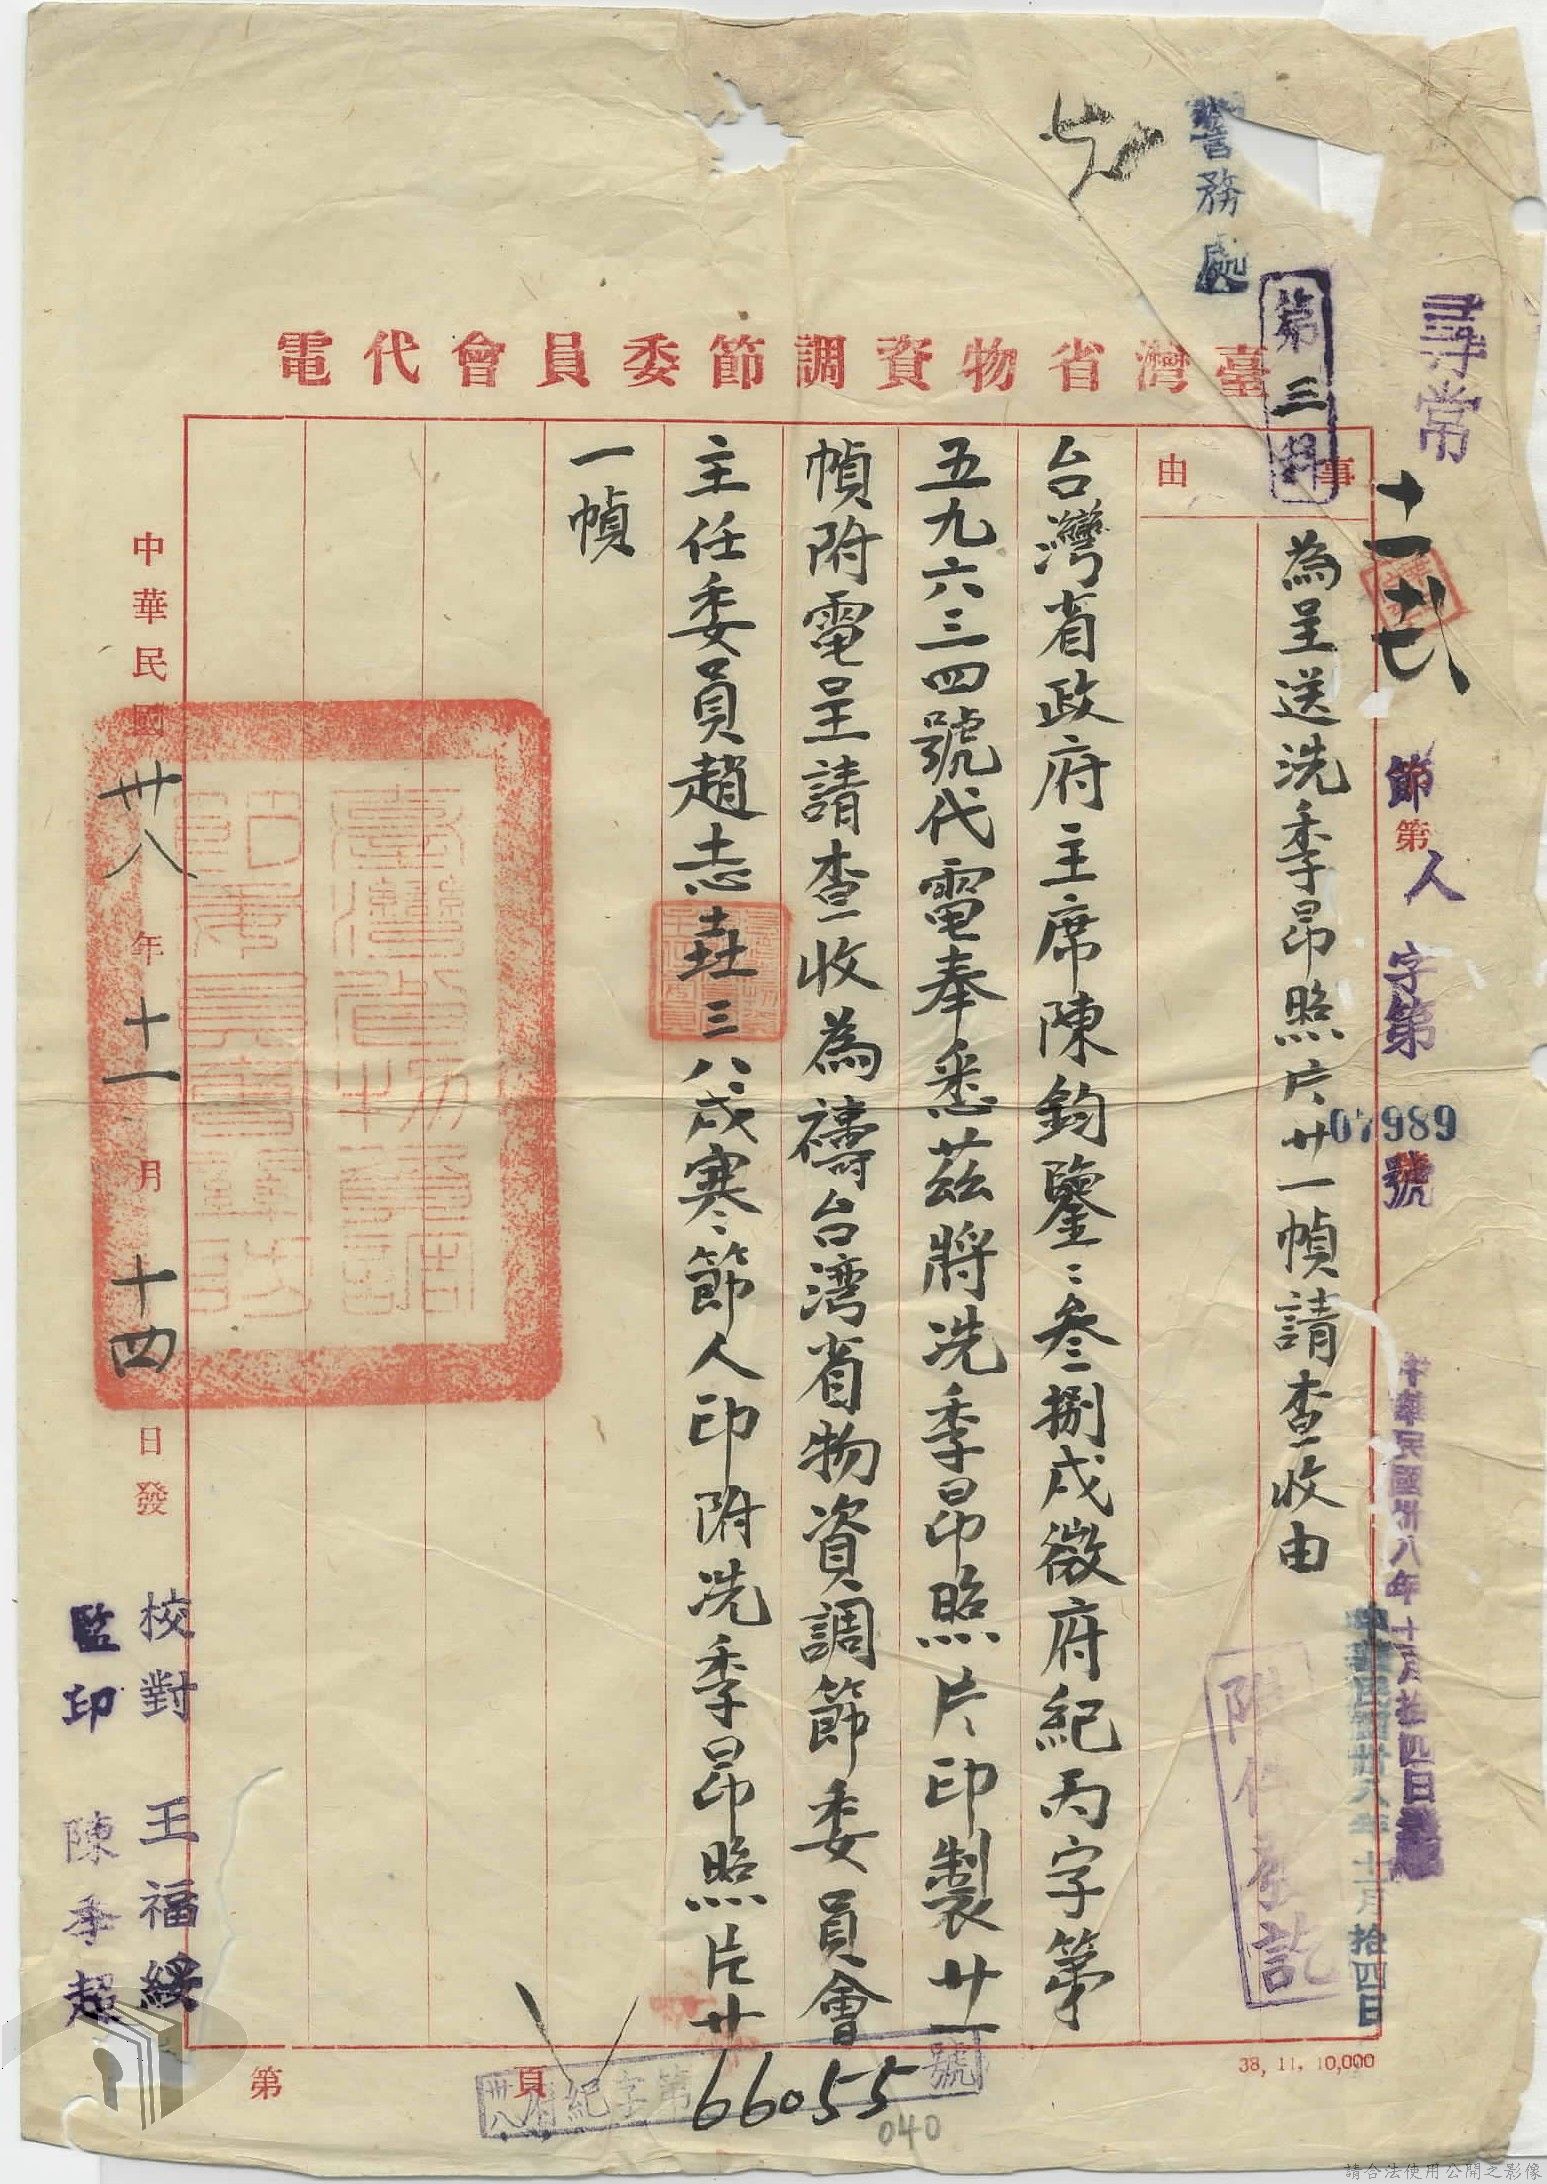 警務處
第三科
尋常
臺灣省物資調節委員會代電
事由
為呈送冼季昂照片廿一幀請查收由
節第人字第07989號
中華民國卅八年十一月拾四日
中華民國卅八年十一月拾四日
附件發訖
台灣省政府主席陳鈞鑒：叁捌戌微府紀丙字第
五九六三四號代電奉悉茲將冼季昂照片印製廿一
幀附電呈請查收為禱台灣省物資調節委員會
主任委員趙志垚三八戌寒節人印附冼季昂照片廿
一幀
中華民國卅八年十一月十四日發
校對 王福綏
監印 陳季超
第 頁
卅八府紀字第66055號
040
38, 11, 10,000
請合法使用公開之影像